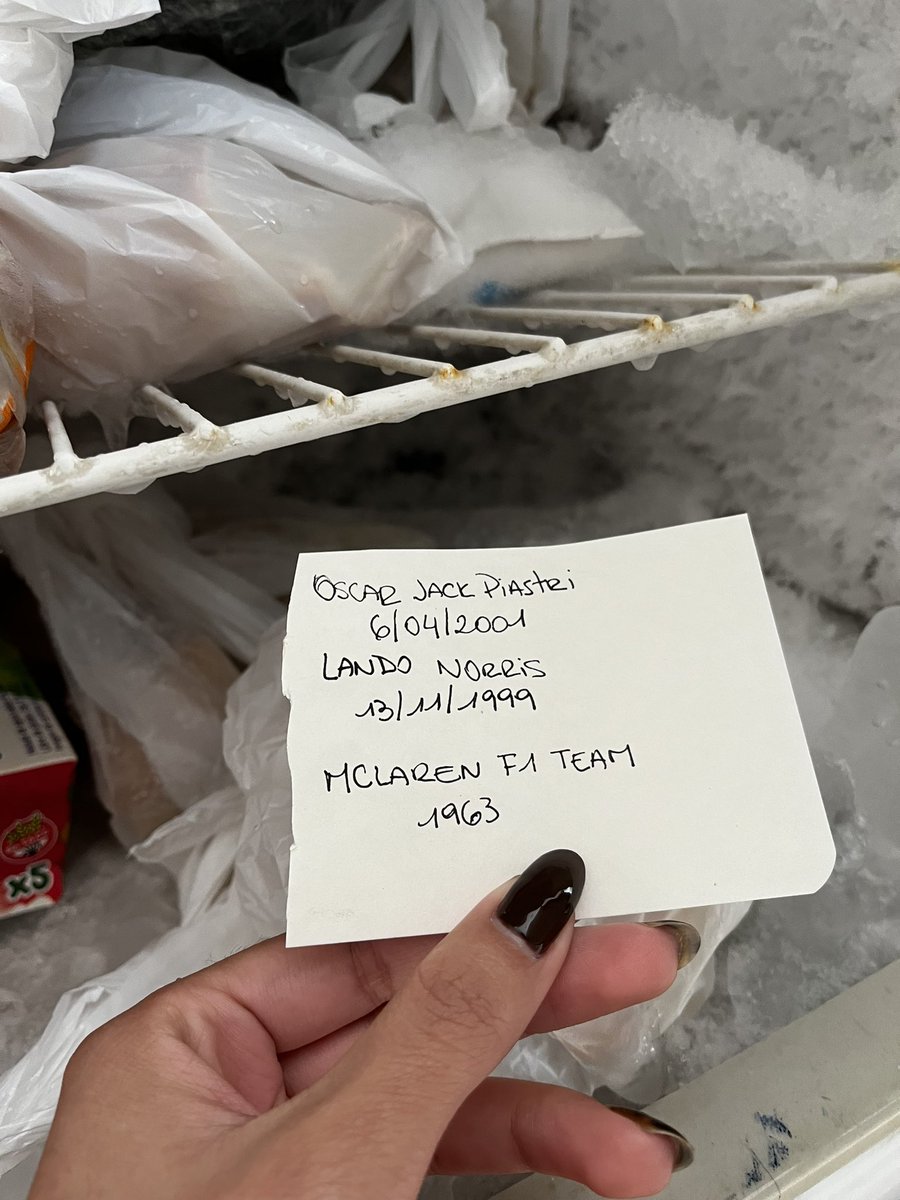 OSCAR JACK PIASTRI
6/04/2001
LANDO NORRIS
13/11/1999
MCLAREN F1 TEAM
1963
x5